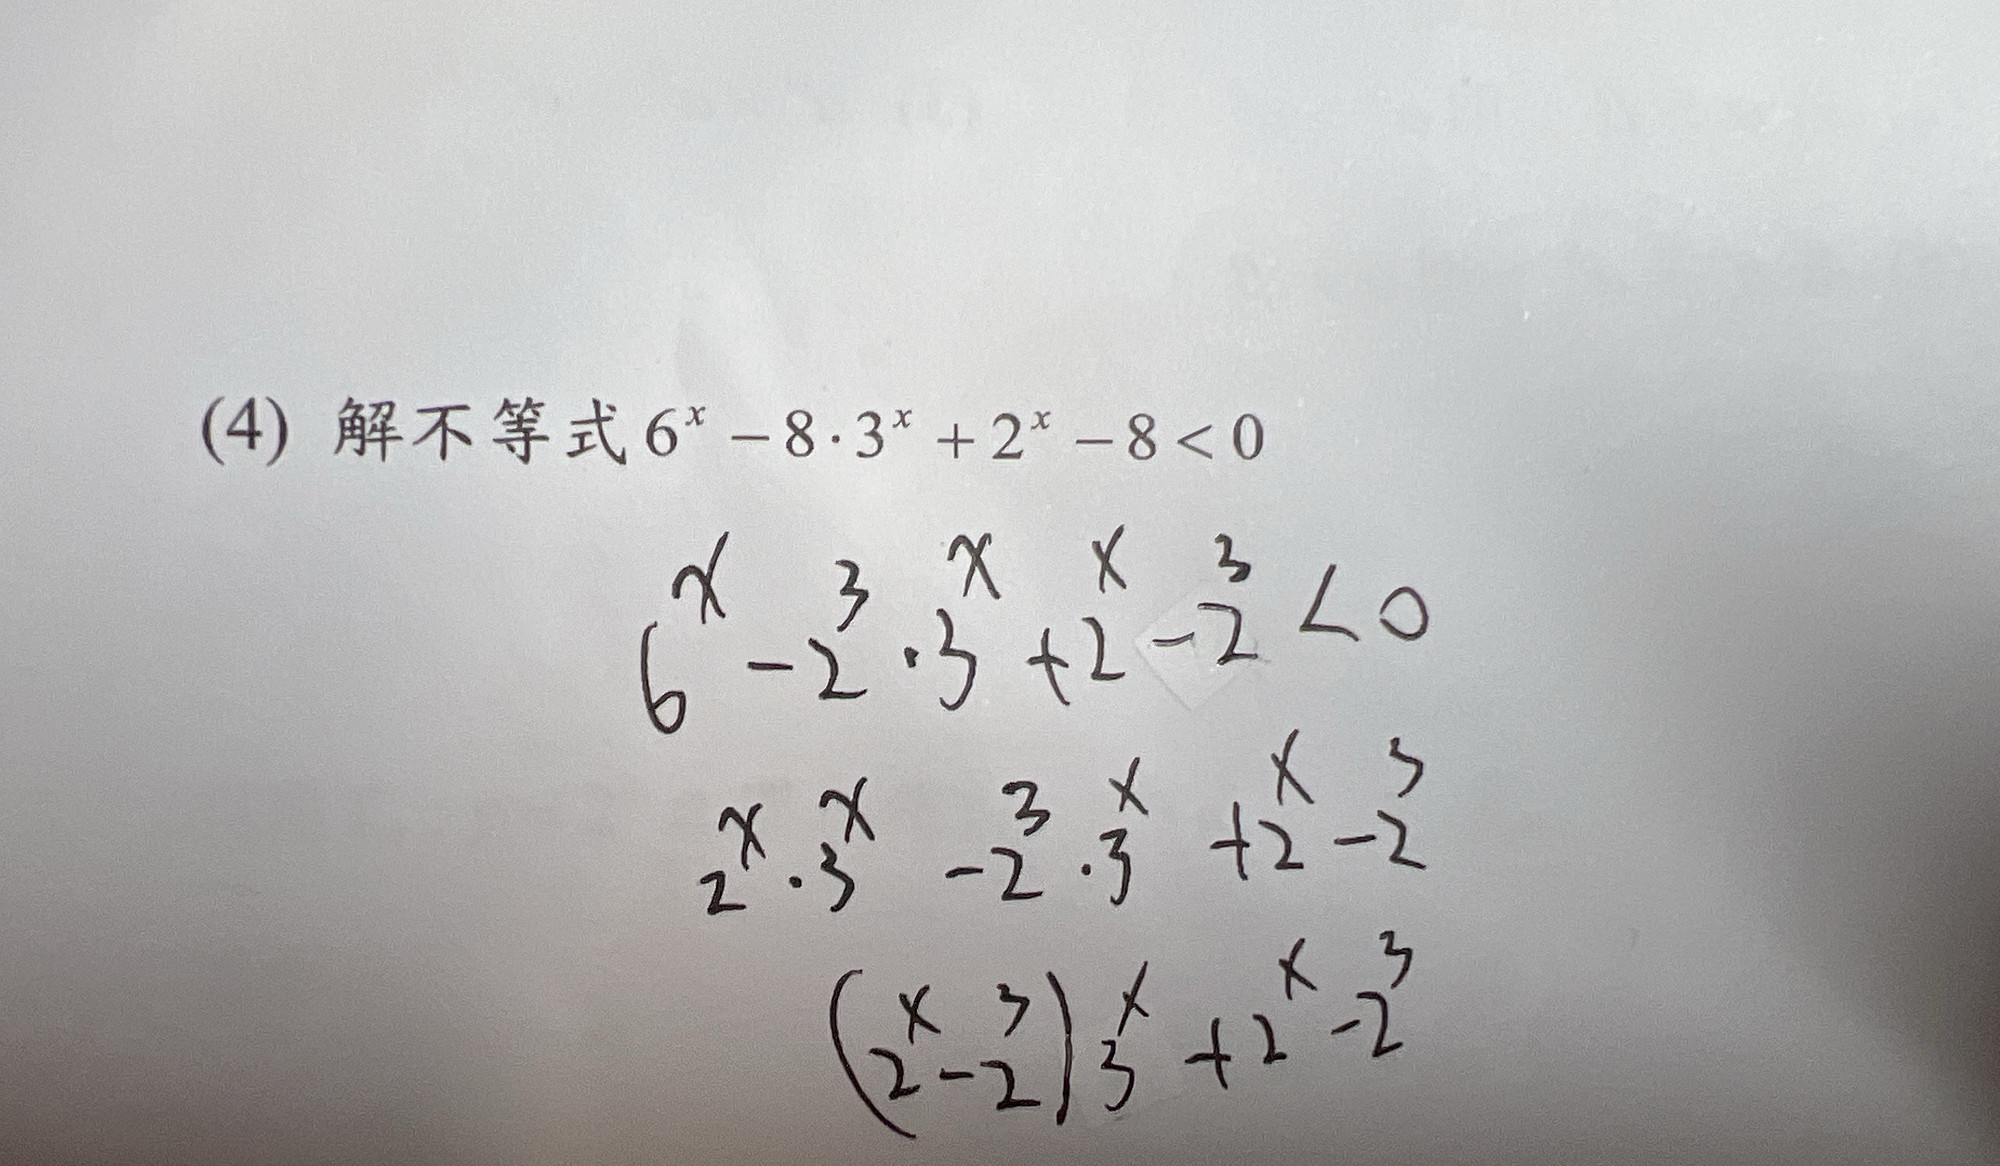 (4) 解不等式 6ˣ − 8·3ˣ + 2ˣ − 8 < 0
6ˣ − 2³·3ˣ + 2ˣ − 2³ < 0
2ˣ·3ˣ − 2³·3ˣ + 2ˣ − 2³
(2ˣ − 2³)3ˣ + 2ˣ − 2³